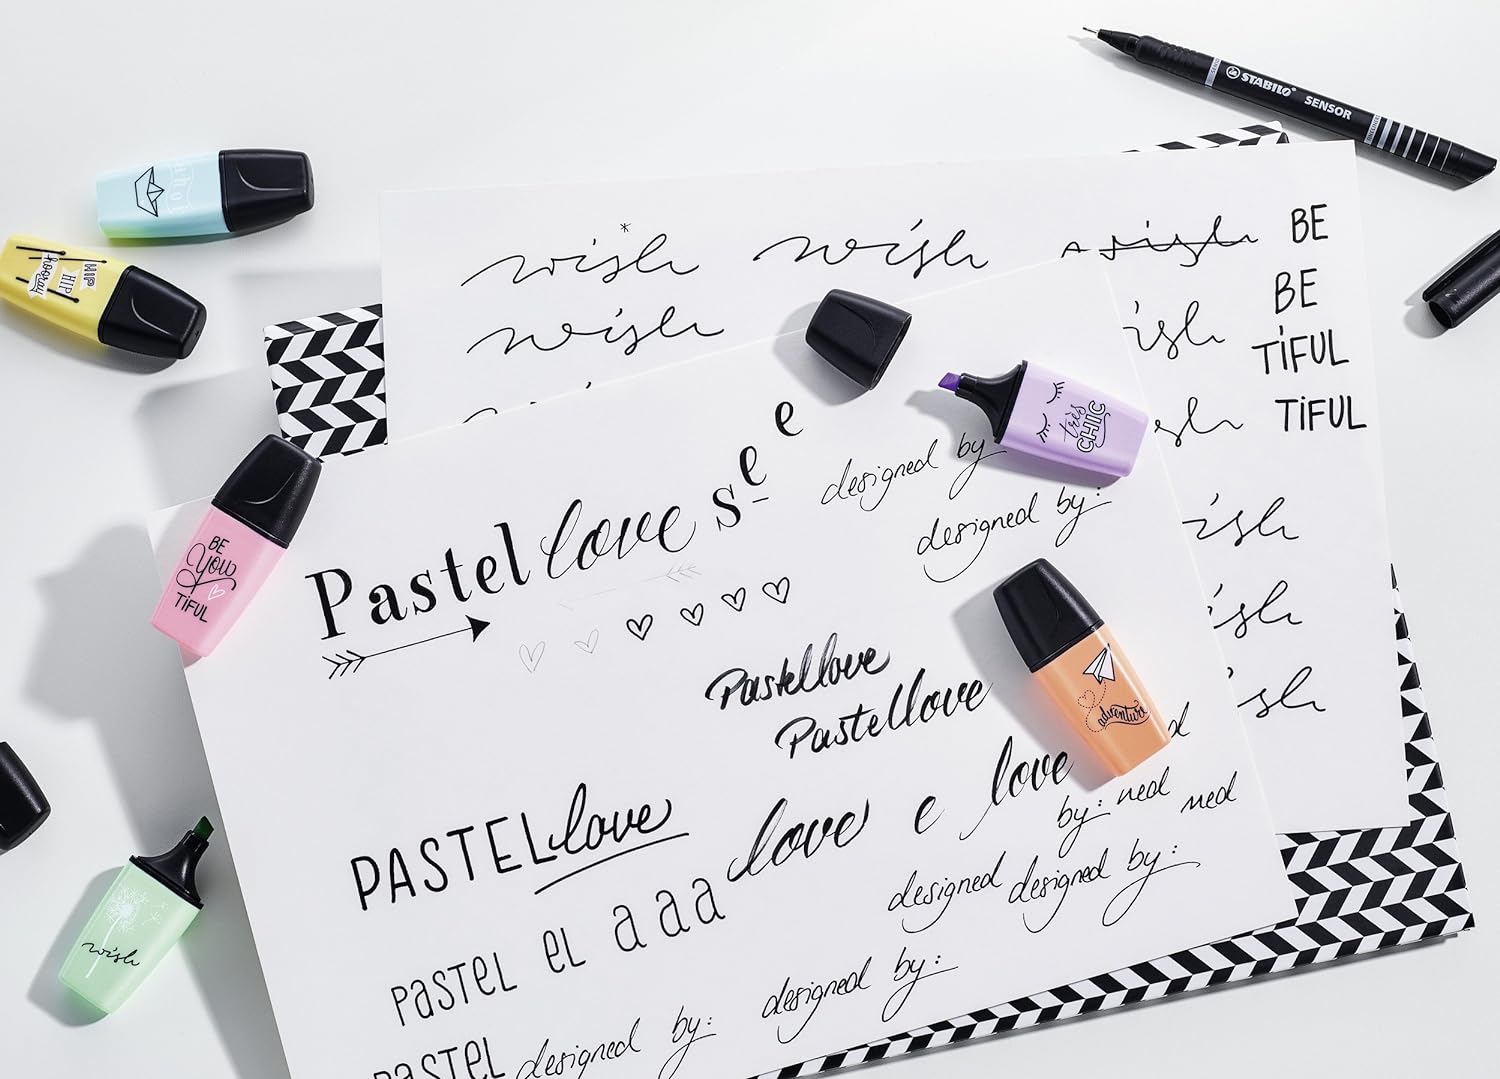 STABILO SENSOR
ahoi
HIP
HIP
hooray
wish wish wish BE
wish BE
TiFUL
TiFUL
très
CHIC
BE
YOU
TiFUL
Pastel love s e e
designed by
designed by:
Pastellove
Pastellove
adventure
PASTEL love
love e love
by: ned ned
PASTEL EL a a a
designed designed by:
designed by:
PASTEL designed by:
wish